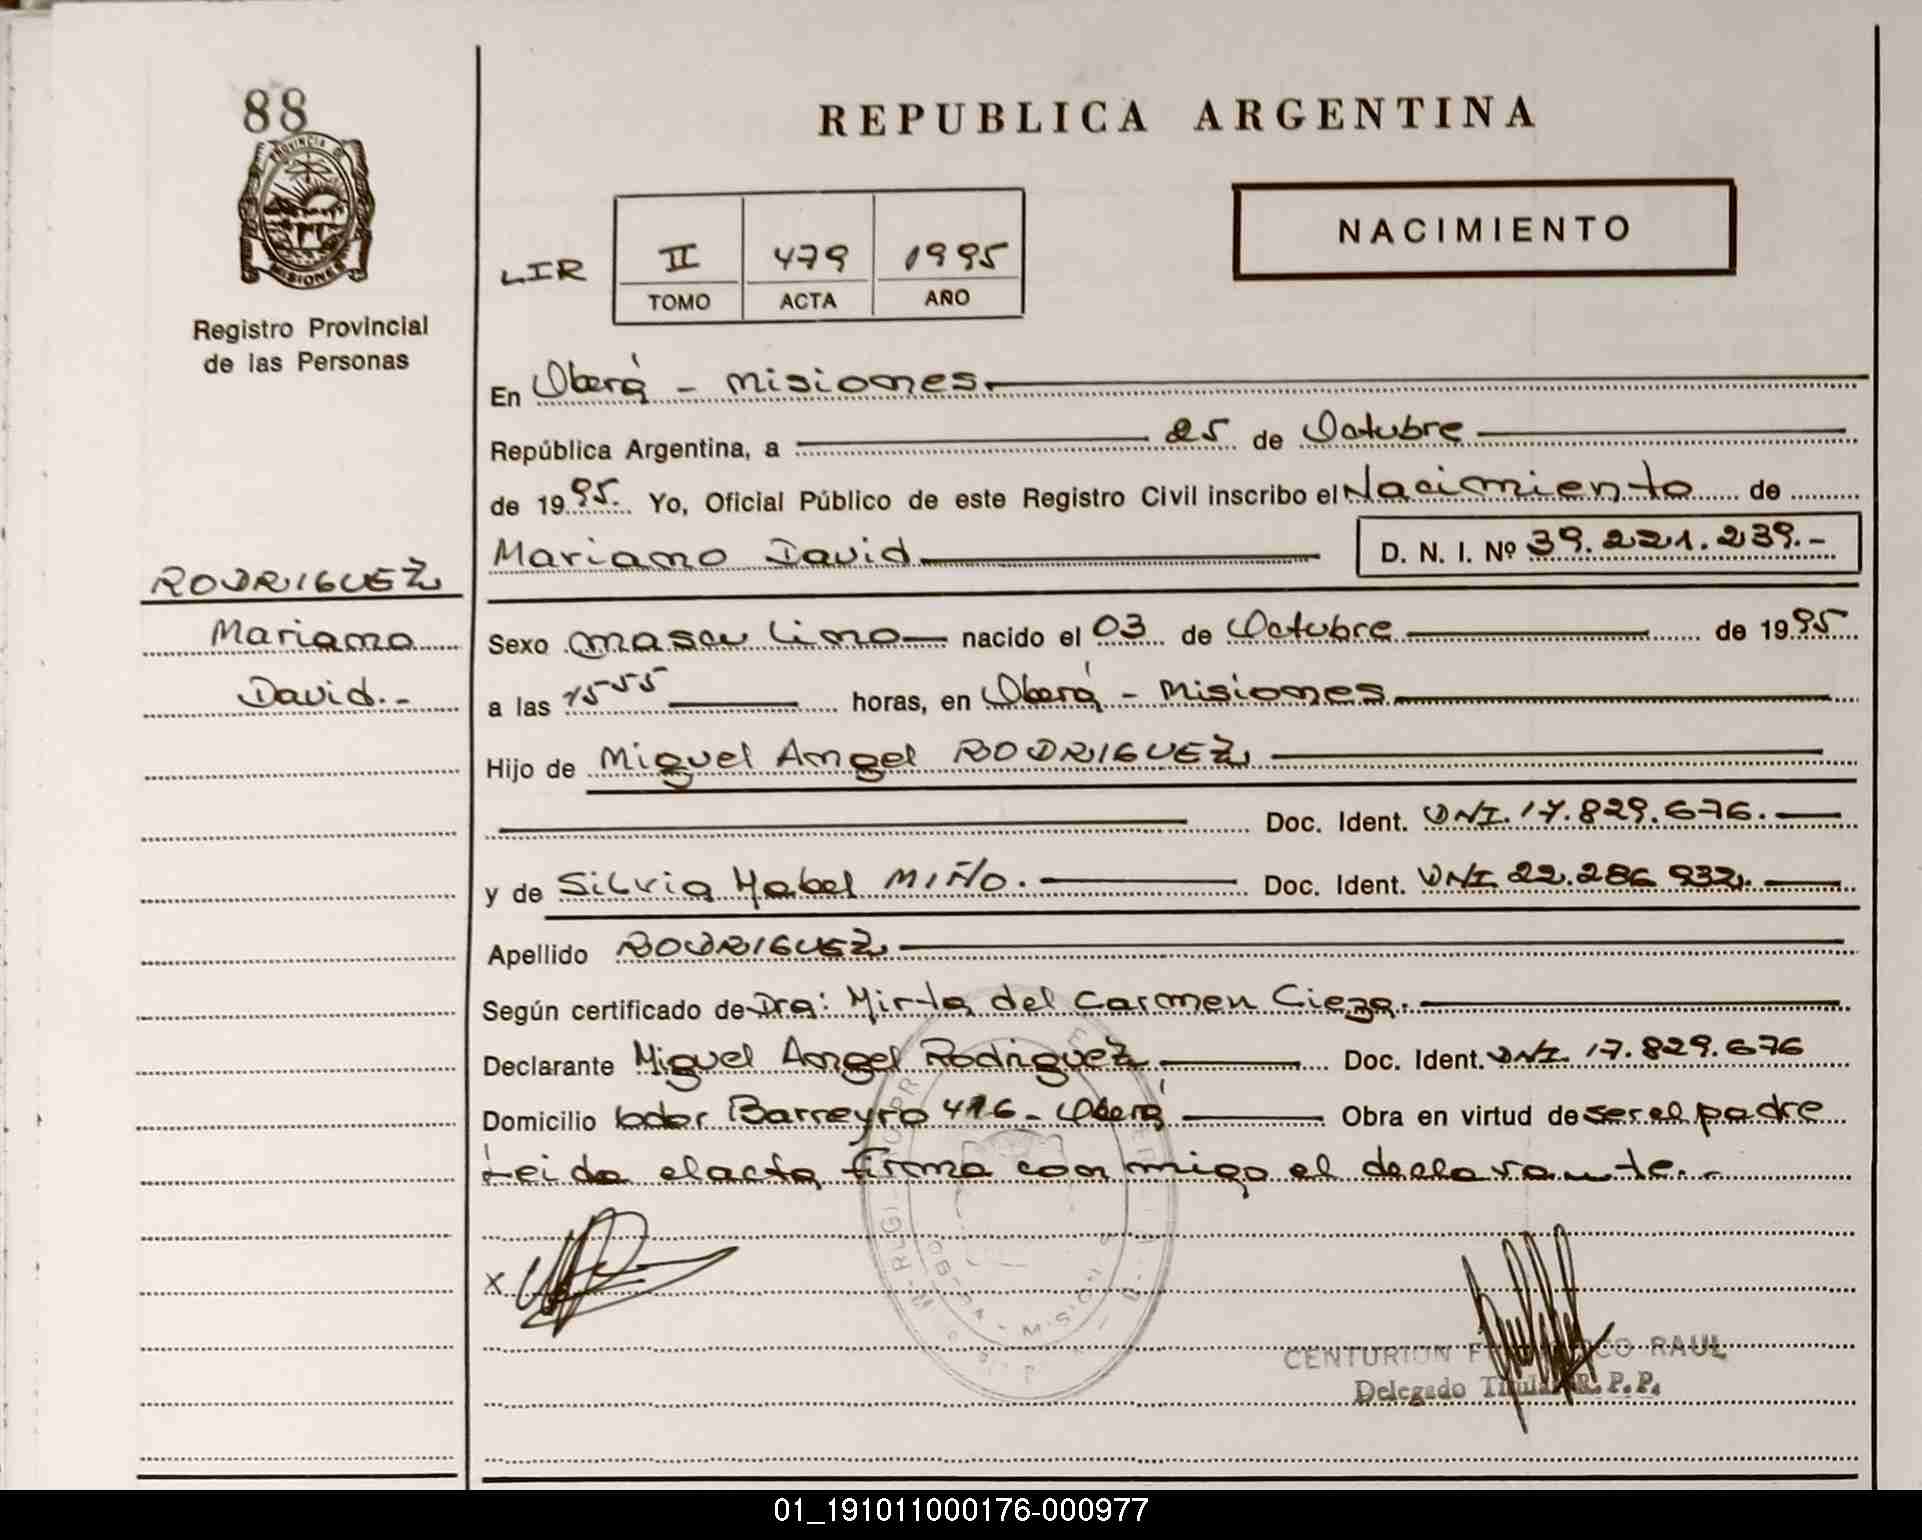 88
PROVINCIA DE
MISIONES
Registro Provincial
de las Personas
REPUBLICA ARGENTINA
NACIMIENTO
LIR II 479 1995
TOMO ACTA AÑO
En Oberá - Misiones.
República Argentina, a 25 de Octubre
de 1995. Yo, Oficial Público de este Registro Civil inscribo el Nacimiento de
Mariano David D. N. I. Nº 39.221.239.-
RODRIGUEZ
Mariano
David.-
Sexo masculino nacido el 03 de Octubre de 1995
a las 15 55 horas, en Oberá - Misiones
Hijo de Miguel Angel RODRIGUEZ
Doc. Ident. DNI. 17.829.676.
y de Silvia Mabel MIÑO. Doc. Ident. DNI 22.286.932.
Apellido RODRIGUEZ
Según certificado de Dra: Mirta del Carmen Cieza.
Declarante Miguel Angel Rodriguez Doc. Ident. DNI. 17.829.676
Domicilio Barreyro 416 - Oberá Obra en virtud de ser el padre
Leida el acta, firma conmigo el declarante.-
X
CENTURION RAUL
Delegado Titular R.P.P.
01_191011000176-000977